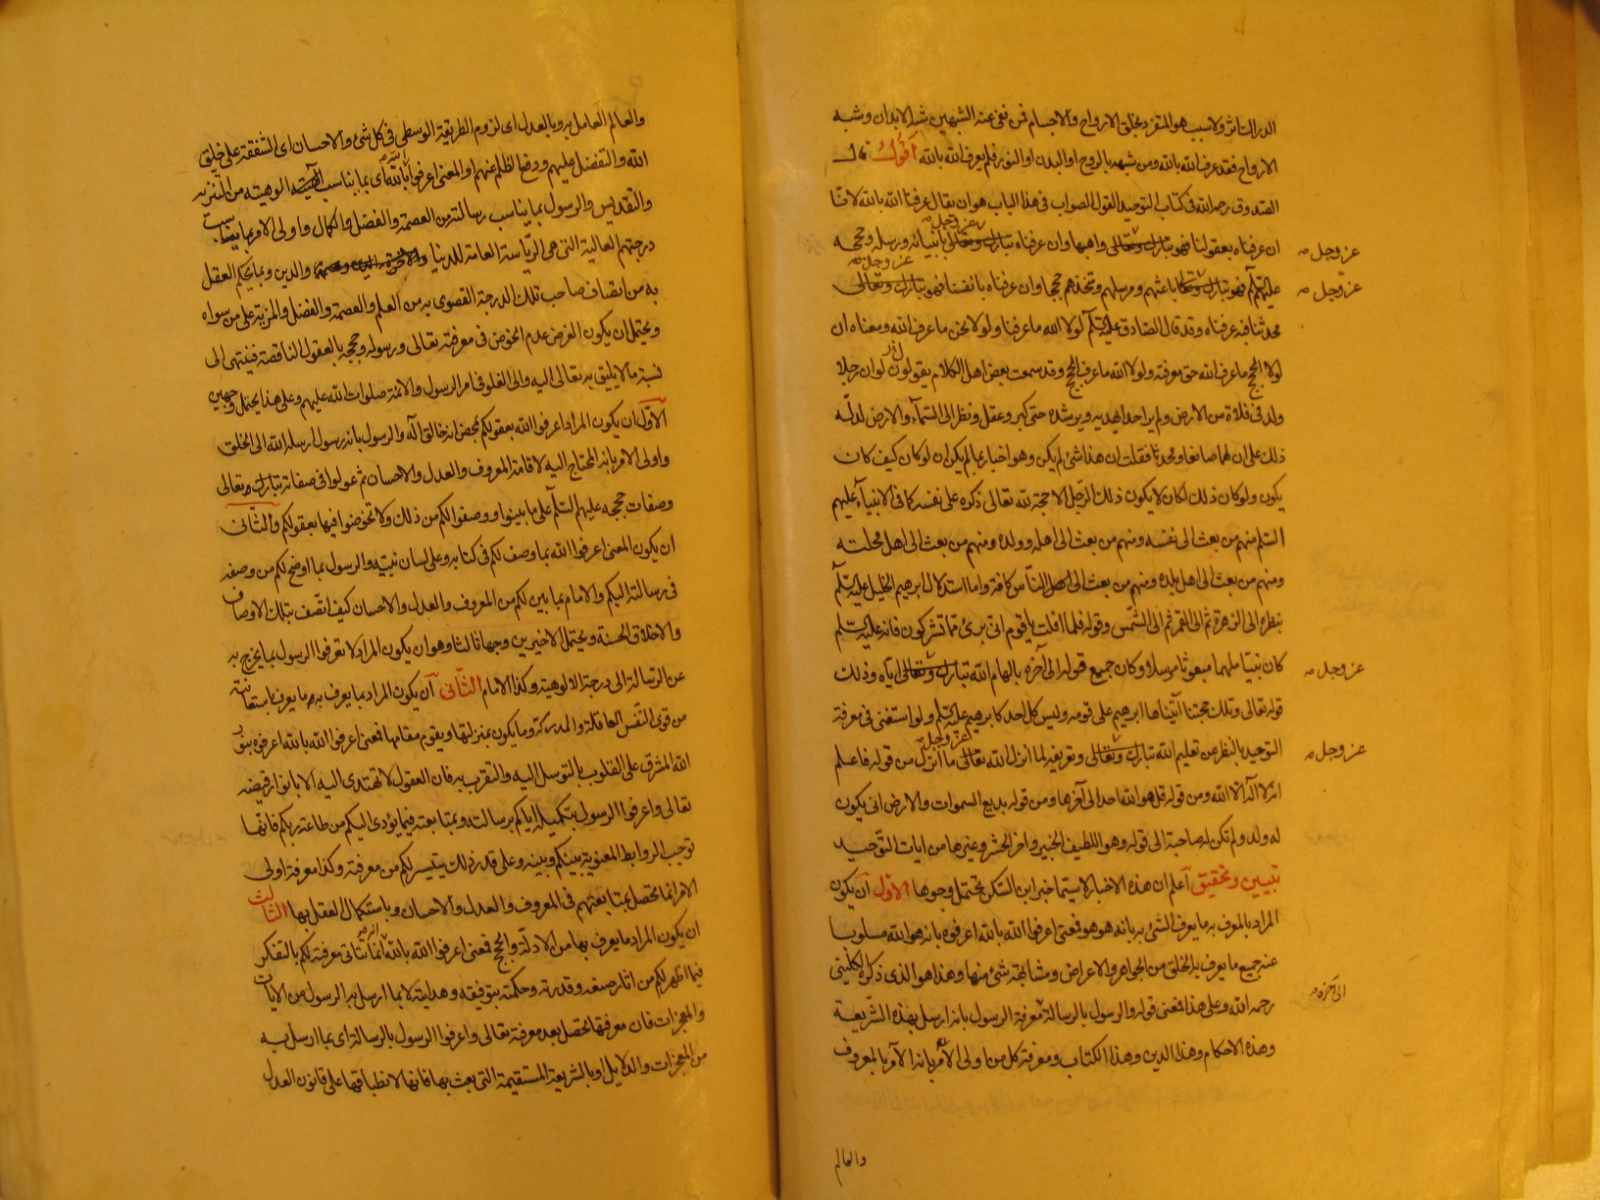 الدراك التاثر ولا سبب هو المتفرد بخلق الارواح والاجسام فمن نفى عنه الشبهين شبه الابدان وشبه
الارواح فقد عرف الله بالله ومن شبهه بالروح او البدن او النور فلم يعرف الله بالله أقول قال
الصدوق رحمه الله في كتاب التوحيد القول الصواب في هذا الباب هو ان يقال عرفنا الله بالله لانا
ان عرفناه بعقولنا فهو تبارك وتعالى واهبها وان عرفناه تبارك وتعالى عز وجل بانبيائه ورسله وحججه
عز وجل
عليهم السلم فهو تبارك وتعالى عز وجل باعثهم ومرسلهم ومتخذهم حججا وان عرفناه بانفسنا فهو تبارك وتعالى
عز وجل
محدثنا فبه عرفناه وقد قال الصادق عليه السلم لولا الله ما عرفنا ولولا نحن ما عرف الله ومعناه ان
لولا الحجج ما عرف الله حق معرفته ولولا الله ما عرف الحجج وقد سمعت بعض اهل الكلام يقول لو ان رجلا
ولد في فلاة من الارض ولم ير احدا يهديه ويرشده حتى كبر وعقل ونظر الى السمآء والارض لدله
ذلك على ان لهما صانعا ومحدثا فقلت ان هذا شئ لم يكن وهو اخبار بما لم يكن ان لو كان كيف كان
يكون ولو كان ذلك لكان لا يكون ذلك الرجل الا حجة لله تعالى ذكره على نفسه كما في الانبيآء عليهم
السلم منهم من بعث الى نفسه ومنهم من بعث الى اهله وولده ومنهم من بعث الى اهل محلته
ومنهم من بعث الى اهل بلده ومنهم من بعث الى الناس كافة واما استدلال ابرهيم الخليل عليه السلم
بنظره الى الزهرة ثم الى القمر ثم الى الشمس وقوله فلما افلت يا قوم انى برئ مما تشركون فانه عليه السلم
كان نبيا ملهما مبعوثا مرسلا وكان جميع قوله الى آخره بالهام الله تبارك وتعالى اياه وذلك
عز وجل
قوله تعالى وتلك حجتنا آتيناها ابرهيم على قومه وليس كل احد كابرهيم عليه السلم ولو استغنى في معرفة
التوحيد بالنظر عن تعليم الله تبارك وتعالى وتعريفه لما انزل الله تعالى عز وجل ما انزل من قوله فاعلم
عز وجل
انه لا اله الا الله ومن قوله قل هو الله احد الى آخرها ومن قوله بديع السموات والارض انى يكون
له ولد ولم تكن له صاحبة الى قوله وهو اللطيف الخبير واخر الحشر وغيرها من ايات التوحيد
تبيين وتحقيق اعلم ان هذه الاخبار لاسيما خبر ابن السكن تحتمل وجوها الاول ان يكون
المراد بالمعرف به ما يعرف الشئ به بانه هو هو فمعنى اعرفوا الله بالله اعرفوه بانه هو الله مسلوبا
عنه جميع ما يعرف به الخلق من الجواهر والاعراض ومشابهة شئ منها وهذا هو الذى ذكره الكلينى
رحمه الله وعلى هذا فمعنى قوله والرسول بالرسالة معرفة الرسول بانه ارسل بهذه الشريعة
الى آخره
وهذه الاحكام وهذا الدين وهذا الكتاب ومعرفة كل من اولى الامر بانه الآمر بالمعروف
والعالم
والعالم العامل به وبالعدل اى لزوم الطريقة الوسطى في كل شئ والاحسان اى الشفقة على خلق
الله والتفضل عليهم ودفع الظلم عنهم او المعنى اعرفوا الله بالله اى بما يناسب الوهيته من التنزيه
والتقديس والرسول بما يناسب رسالته من العصمة والفضل والكمال واولى الامر بما يناسب
درجتهم العالية التى هى الرياسة العامة للدنيا والدين وبما يحكم العقل
به من اتصاف صاحب تلك الدرجة القصوى به من العلم والعصمة والفضل والمزية على من سواه
ويحتمل ان يكون الغرض عدم الخوض في معرفته تعالى ورسوله وحججه بالعقول الناقصة فينتهى الى
نسبة ما لا يليق به تعالى اليه والى الغلو في امر الرسول والائمة صلوات الله عليهم وعلى هذا يحتمل وجهين
الاول ان يكون المراد اعرفوا الله بعقولكم بمحض انه خالق اله والرسول بانه رسول ارسله الله الى الخلق
واولى الامر بانه المحتاج اليه لاقامة المعروف والعدل والاحسان ثم عولوا في صفاته تبارك وتعالى
وصفات حججه عليهم السلم على ما بينوا ووصفوا لكم من ذلك ولا تخوضوا فيها بعقولكم والثانى
ان يكون المعنى اعرفوا الله بما وصف لكم في كتابه وعلى لسان نبيه والرسول بما اوضح لكم من وصفه
في رسالته اليكم والامام بما بين لكم من المعروف والعدل والاحسان كيف اتصف بتلك الاوصاف
والاخلاق الحسنة ويحتمل الاخيرين وجها ثالثا وهو ان يكون المراد لا تعرفوا الرسول بما يخرج به
عن الرسالة الى درجة الالوهية وكذا الامام الثانى ان يكون المراد بما يعرف به ما يعرف باستعانته
من قوى النفس العاقلة والمدركة وما يكون بمنزلتها ويقوم مقامها فمعنى اعرفوا الله بالله اعرفوه بنور
الله المشرق على القلوب بالتوسل اليه والتقرب به فان العقول لا تهتدى اليه الا بانوار فيضه
تعالى واعرفوا الرسول بتكميله اياكم برسالته وبمتابعته فيما يؤدى اليكم من طاعة ربكم فانها
توجب الروابط المعنوية بينكم وبينه وعلى قدر ذلك يتيسر لكم من معرفته وكذا معرفة اولى
الامر انما تحصل بمتابعتهم في المعروف والعدل والاحسان وباستكمال العقل بها الثالث
ان يكون المراد ما يعرف بها من الادلة والحجج فمعنى اعرفوا الله بالله انه انما تتاتى معرفته لكم بالتفكر
فيما اظهر لكم من اثار صنعه وقدرته وحكمته بتوفيقه وهدايته لا بما ارسل به الرسول من الآيات
والمعجزات فان معرفتها تحصل بعد معرفته تعالى واعرفوا الرسول بالرسالة اى بما ارسل به
من المعجزات والدلايل او بالشريعة المستقيمة التى بعث بها فانها لانطباقها على قانون العدل